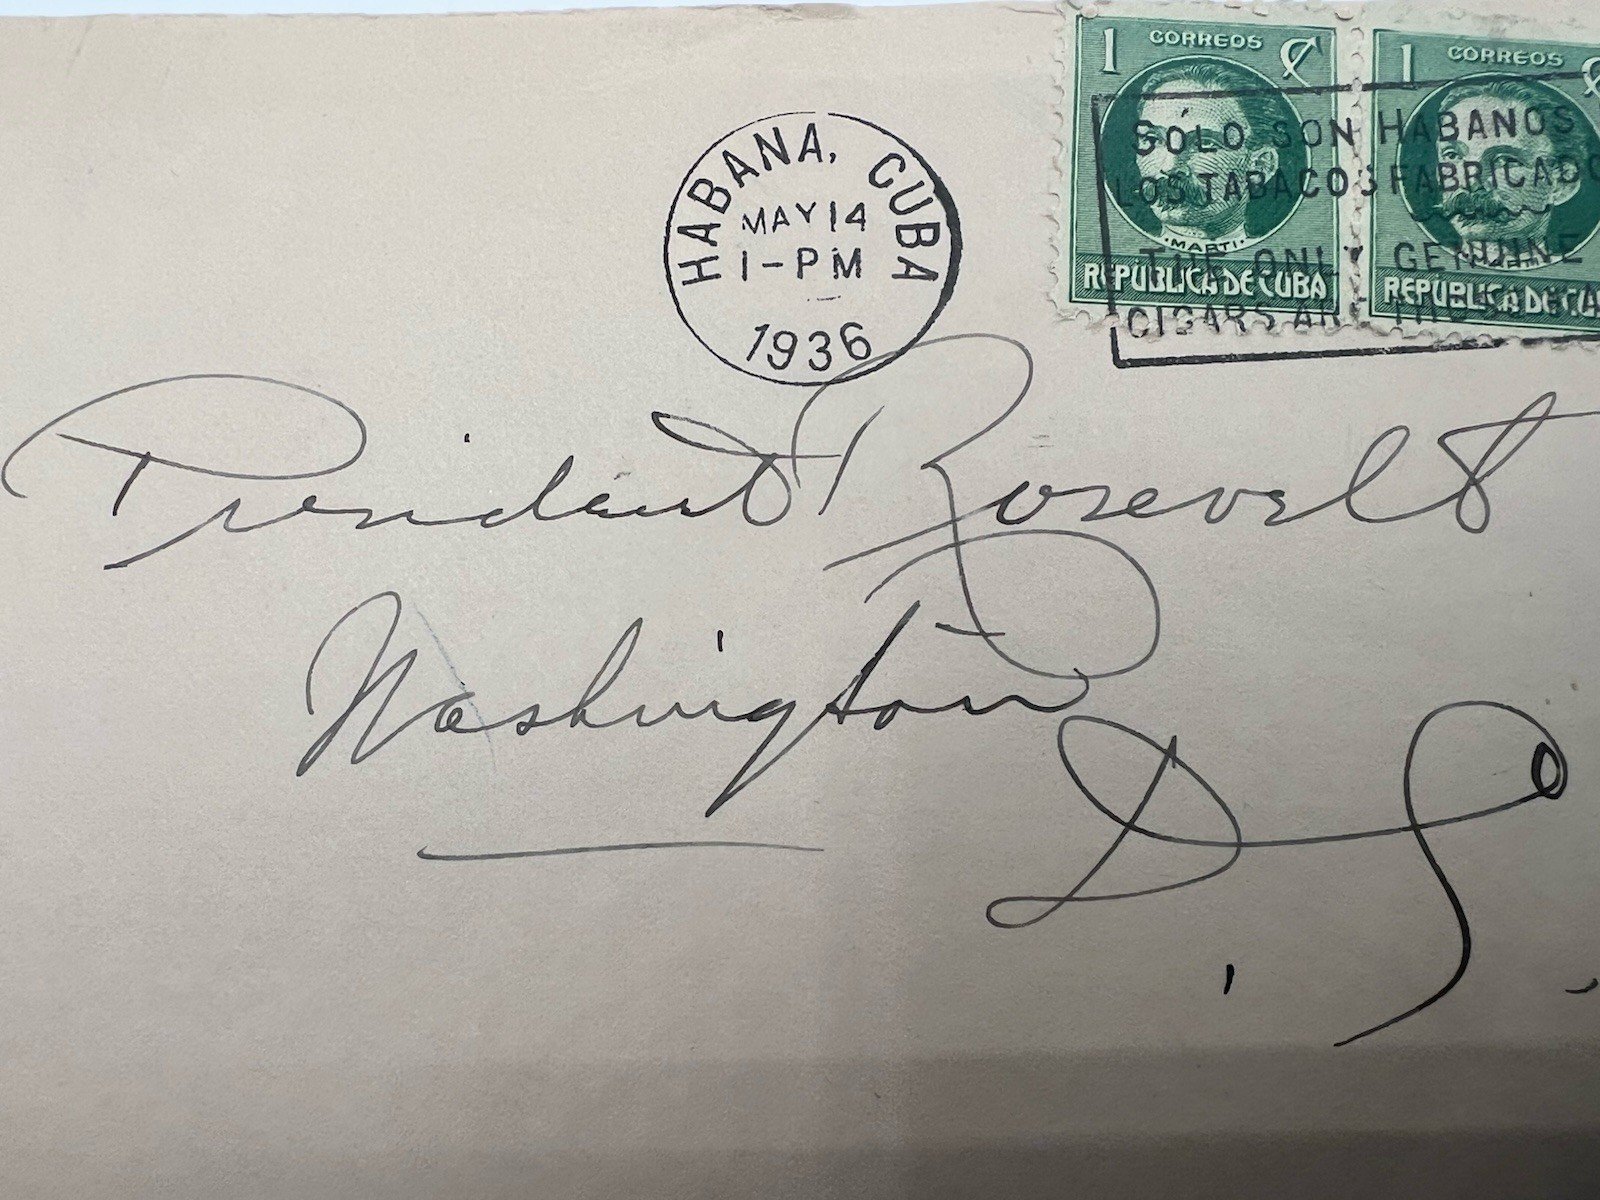 1 CORREOS ¢ 1 CORREOS ¢
HABANA, CUBA
MAY 14
1-PM
1936
SÓLO SON HABANOS
LOS TABACOS FABRICADO
THE ONLY GENUINE
CIGARS ARE THE
MARTI
REPUBLICA DE CUBA REPUBLICA DE CU
President Roosevelt
Washington
D.